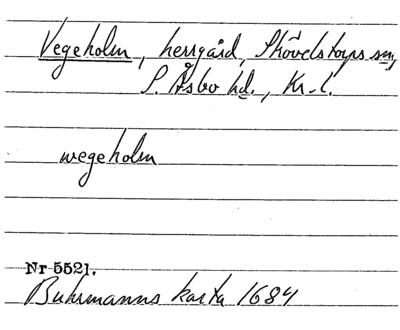 Vegeholm, herrgård, Skövelstorps sn,
S. Åsbo hd., Kr. l.
wegeholm
Nr 5521.
Buhrmanns karta 1684